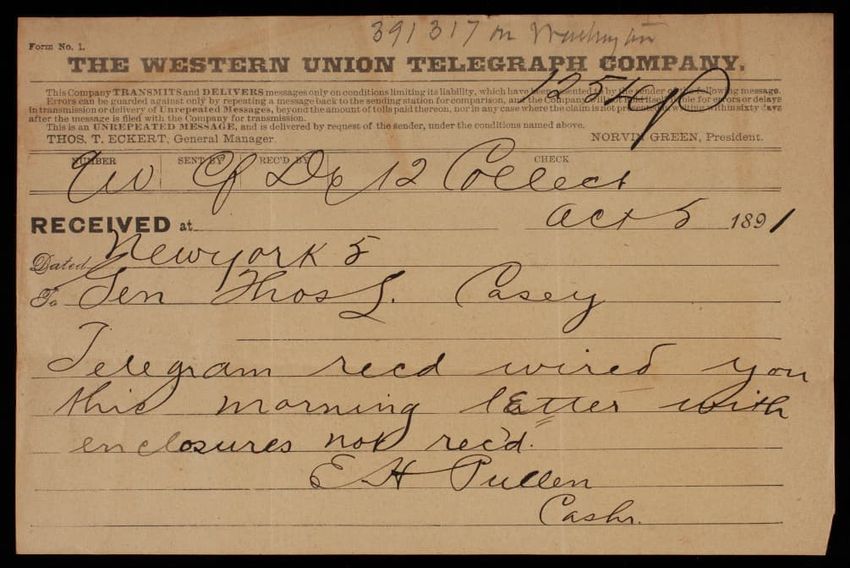 391317 on Washington
Form No. 1.
THE WESTERN UNION TELEGRAPH COMPANY.
This Company TRANSMITS and DELIVERS messages only on conditions limiting its liability, which have been assented to by the sender of the following message.
Errors can be guarded against only by repeating a message back to the sending station for comparison, and the Company will not hold itself liable for errors or delays
in transmission or delivery of Unrepeated Messages, beyond the amount of tolls paid thereon, nor in any case where the claim is not presented in writing within sixty days
after the message is filed with the Company for transmission.
This is an UNREPEATED MESSAGE, and is delivered by request of the sender, under the conditions named above.
THOS. T. ECKERT, General Manager NORVIN GREEN, President.
NUMBER SENT BY REC'D BY CHECK
12 Collect
RECEIVED at Oct 5 1891
Dated New York 5
To Gen Thos L. Casey
Telegram recd wired you
this morning letter with
enclosures not rec'd.
E H Pullen
Cashr.